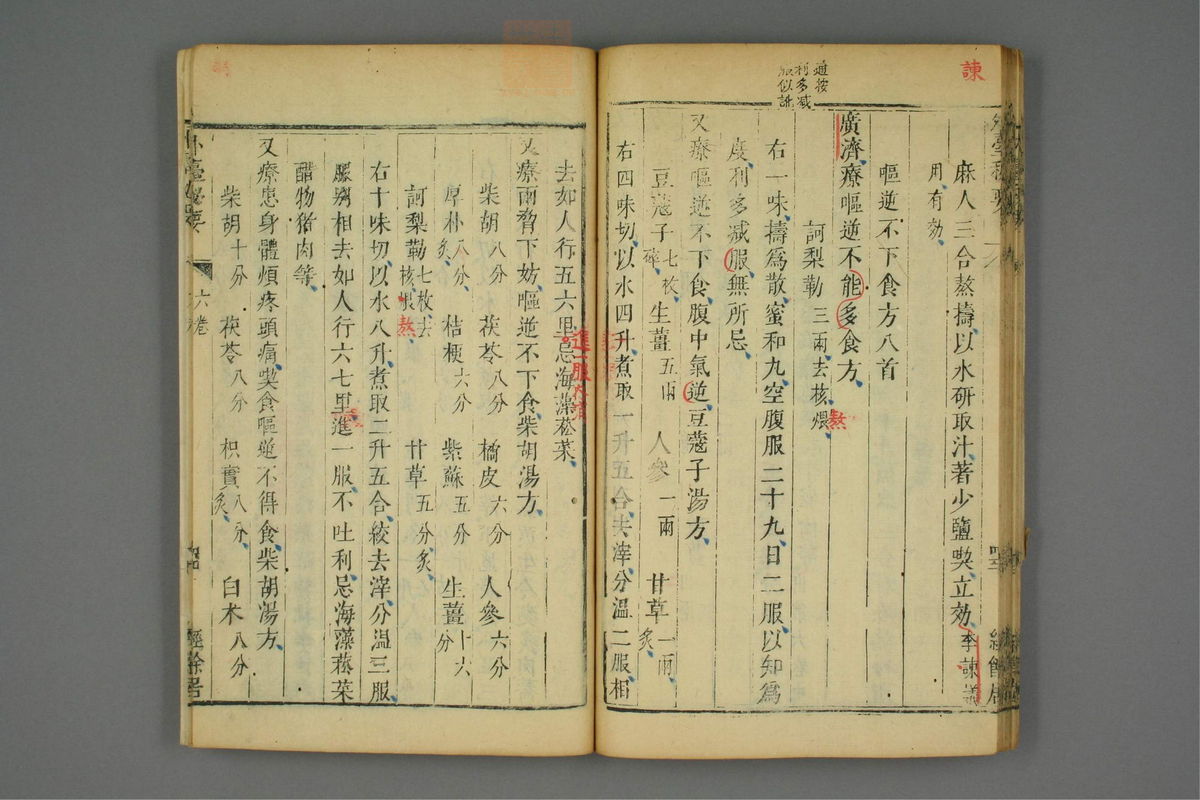 諫
通按
利多減
服似訛
麻人三合熬擣以水研取汁著少鹽喫立効李諫議
用有効
嘔逆不下食方八首
廣濟療嘔逆不能多食方
訶梨勒三兩去核煨
熬
右一味擣為散蜜和丸空腹服二十九日二服以知為
度利多減服無所忌
又療嘔逆不下食腹中氣逆豆蔻子湯方
豆蔻子七枚碎 生薑五兩 人參一兩 甘草一兩炙
右四味切以水四升煮取一升五合去滓分溫二服相
去如人行五六里忌海藻菘菜
進一服
又療兩脅下妨嘔逆不下食柴胡湯方
柴胡八分 茯苓八分 橘皮六分 人參六分
厚朴八分炙 桔梗六分 紫蘇五分 生薑十六分
訶梨勒七枚去核煨 甘草五分炙
熬
右十味切以水八升煮取二升五合絞去滓分溫三服
服別相去如人行六七里進一服不吐利忌海藻菘菜
醋物猪肉等
又療患身體煩疼頭痛喫食嘔逆不得食柴胡湯方
柴胡十分 茯苓八分 枳實八分炙 白朮八分
外臺秘要
六卷
經餘居